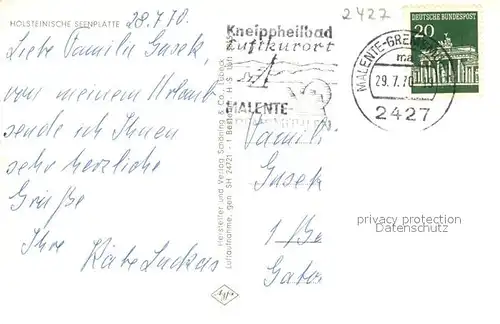 HOLSTEINISCHE SEENPLATTE
28.7.70.
Liebe Familie Gusek,
von meinem Urlaub
sende ich Ihnen
sehr herzliche
Grüße
Ihre Käte Luckas
Hersteller und Verlag Schöning & Co., Lübeck
Luftaufnahme, gen. SH 24721 - 1
Kneippheilbad
Luftkurort
MALENTE-
2427
DEUTSCHE BUNDESPOST
20
MALENTE-GREMSMÜHLEN
29.7.70
2427
Familie
Gusek
1/Be
Gato
privacy protection
Datenschutz